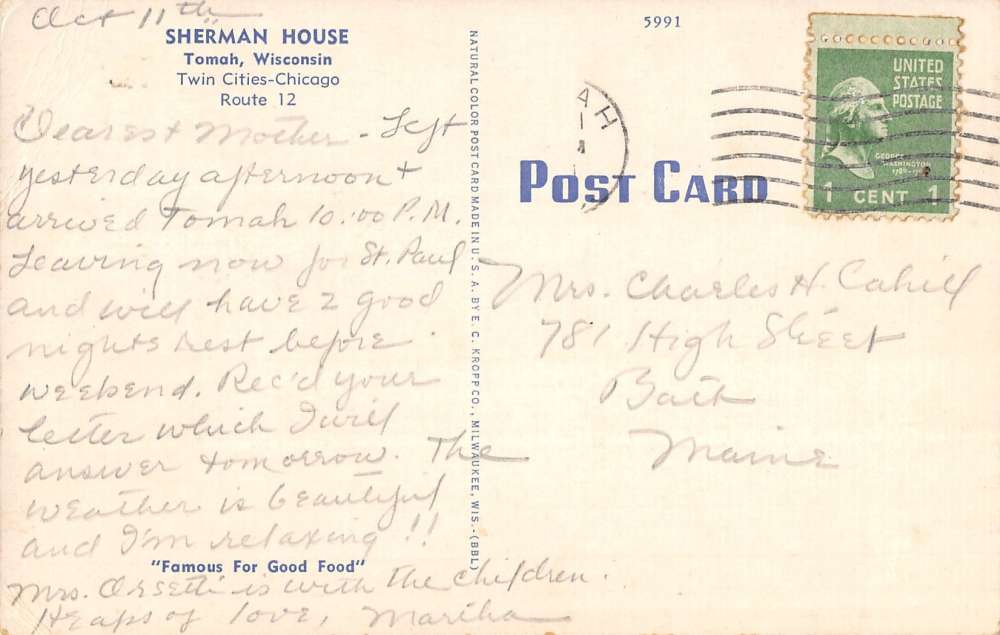 Oct 11th
SHERMAN HOUSE
Tomah, Wisconsin
Twin Cities-Chicago
Route 12
Dearest Mother - Left
yesterday afternoon +
arrived Tomah 10:00 P.M.
Leaving now for St. Paul
and will have 2 good
nights rest before
weekend. Rec'd your
letter which I will
answer tomorrow. The
weather is beautiful
and I'm relaxing!!
"Famous For Good Food"
Mrs. Orsetti is with the children.
Heaps of love, Martha
NATURAL COLOR POST CARD MADE IN U. S. A. BY E. C. KROPP CO., MILWAUKEE, WIS.-(BBL)
5991
AH
1
POST CARD
UNITED
STATES
POSTAGE
GEORGE
WASHINGTON
1 CENT 1
Mrs. Charles H. Cahill
781 High Street
Bath
Maine